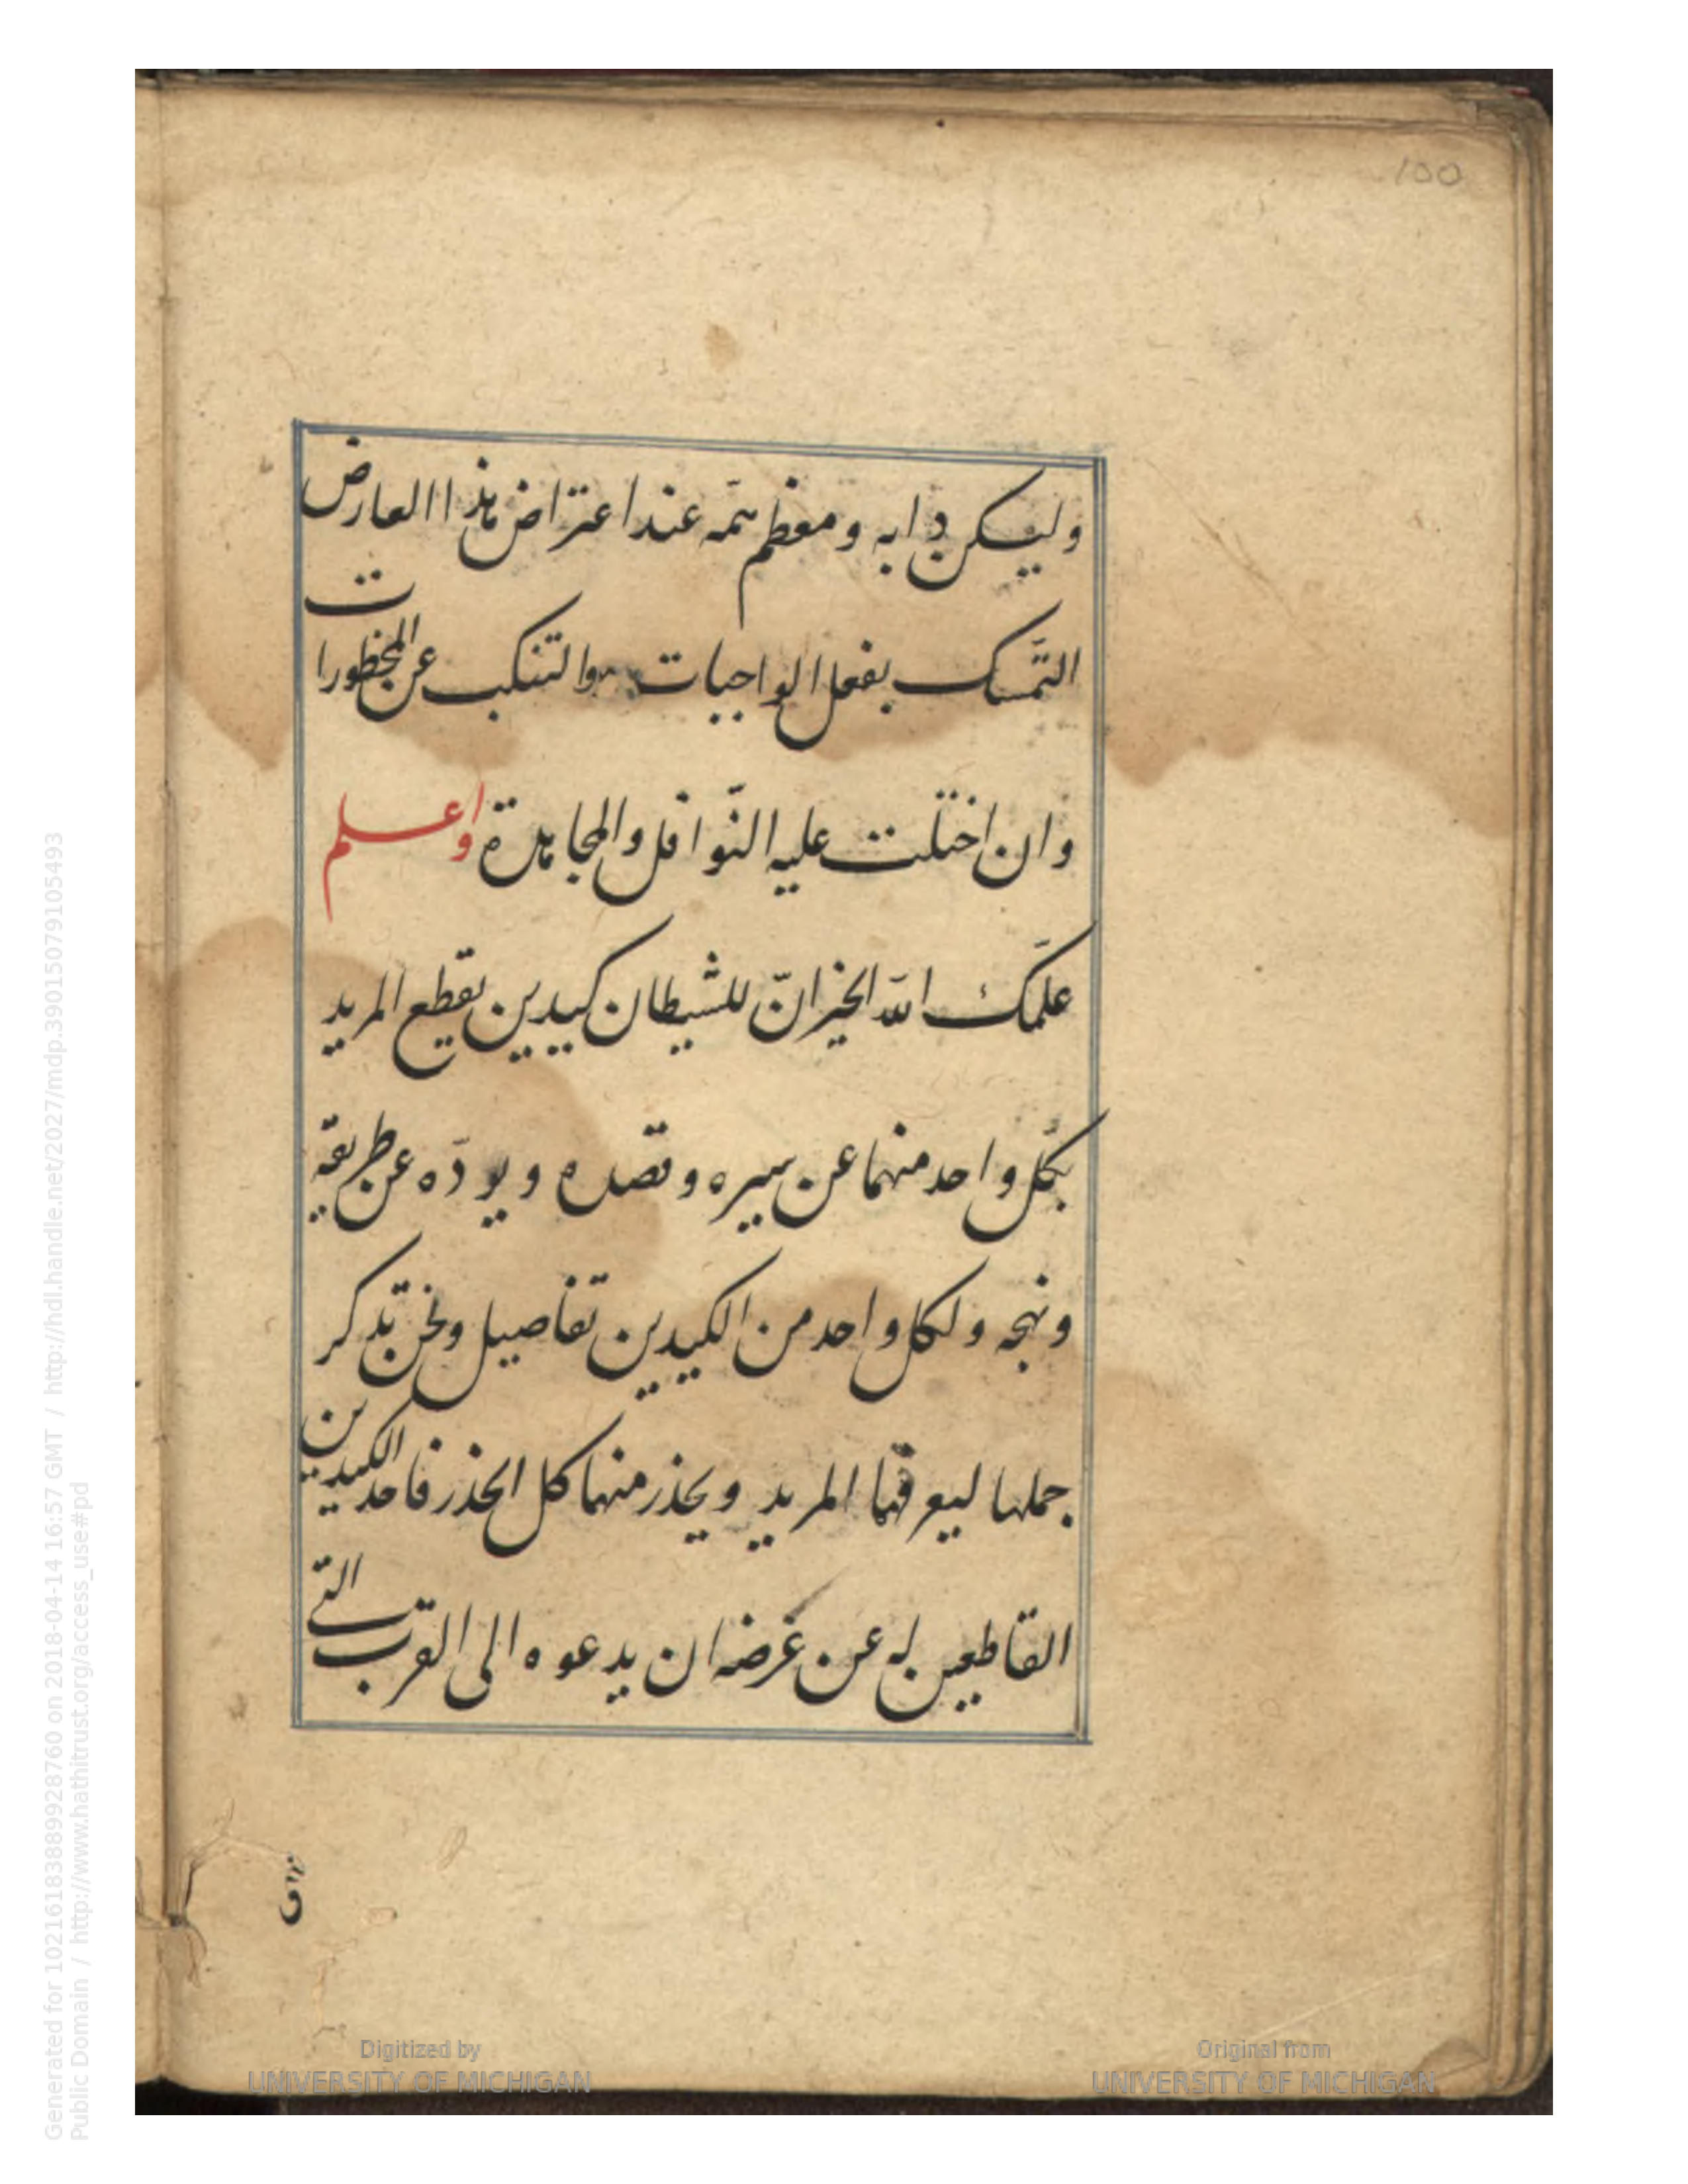 100
وليكن دابه ومعظم همّه عند اعتراض هذا العارض
التمّسك بفعل الواجبات والتنكب عن المحظورات
وان اختلت عليه النّوافل والمجاهدة واعلم
علمّك اللّه الخير انّ للشيطان كيدين يقطع المريد
بكلّ واحد منهما عن سيره وقصده ويردّه عن طريقه
ونهجه ولكل واحد من الكيدين تفاصيل ونحن نذكر
جملها ليعرفها المريد ويحذر منهما كل الحذر فاحد الكيدين
القاطعين له عن غرضه ان يدعوه الى القرب التي
Digitized by
UNIVERSITY OF MICHIGAN
Original from
UNIVERSITY OF MICHIGAN
Generated for 10216183889928760 on 2018-04-14 16:57 GMT / http://hdl.handle.net/2027/mdp.39015079105493
Public Domain / http://www.hathitrust.org/access_use#pd